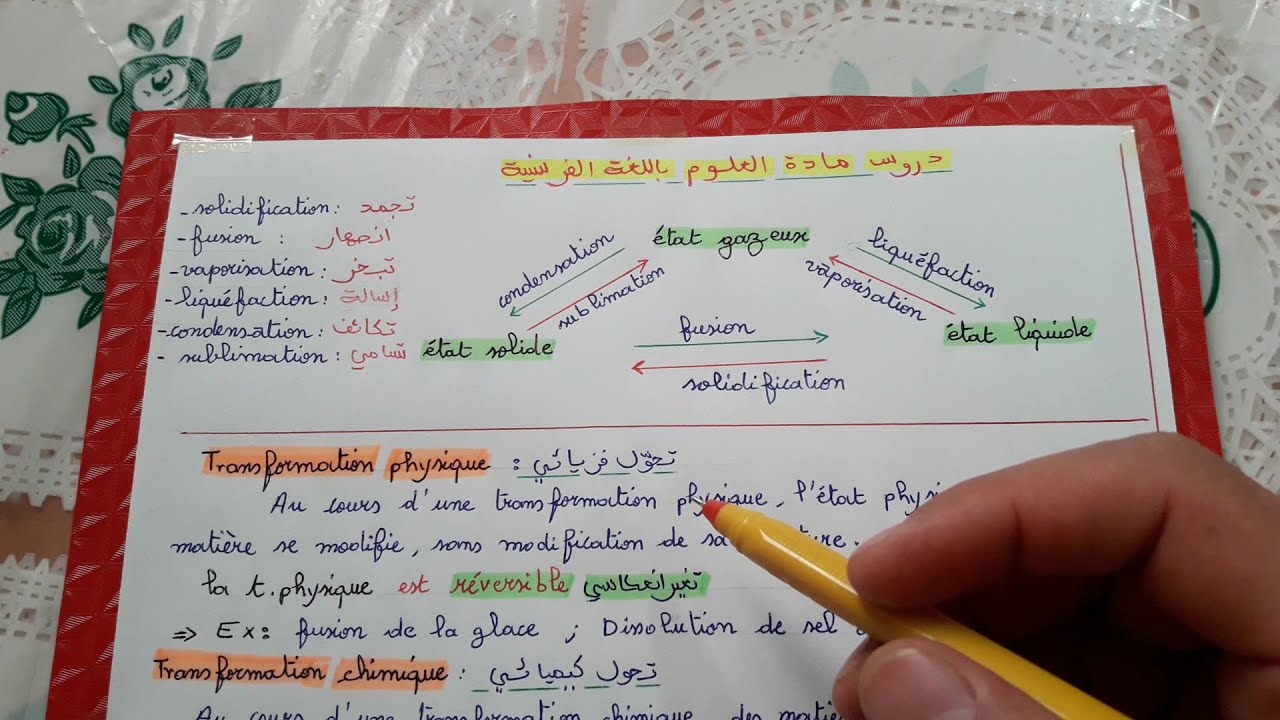 دروس مادة العلوم باللغة الفرنسية
- solidification : تجمد
- fusion : انصهار
- vaporisation : تبخر
- liquéfaction : إسالة
- condensation : تكاثف
- sublimation : تسامي
état gazeux
condensation
sublimation
liquéfaction
vaporisation
état solide
fusion
solidification
état liquide
Transformation physique : تحوّل فزيائي
Au cours d'une transformation physique, l'état
matière se modifie, sans modification de
la t. physique est réversible تغير انعكاسي
=> Ex: fusion de la glace ; Dissolution de sel
Transformation chimique : تحول كيميائي
Au cours d'une transformation chimique des